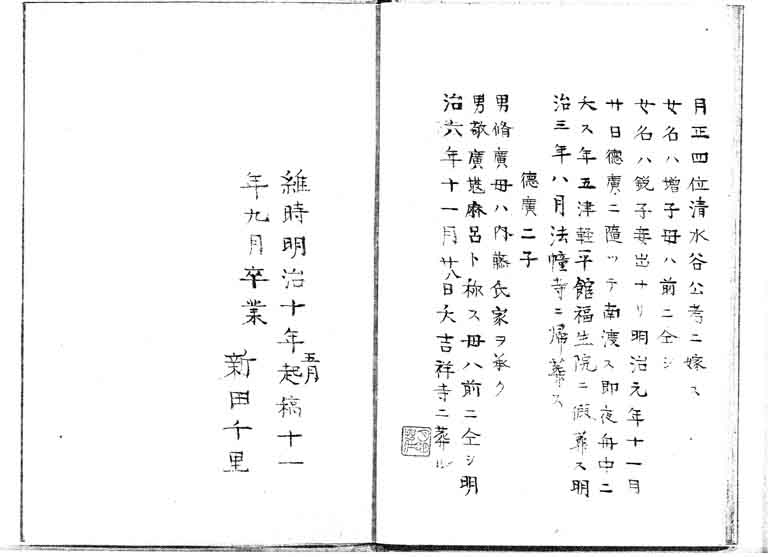 月正四位清水谷公考ニ嫁ス
女名ハ増子母ハ前ニ仝シ
女名ハ鋭子妾出ナリ明治元年十一月
廿日德廣ニ隨ツテ南渡ス即夜舟中ニ
夭ス年五津軽平館福生院ニ假葬ス明
治三年八月法幢寺ニ帰葬ス
德廣二子
男脩廣母ハ内藤氏家ヲ承ク
男敬廣麻呂ト称ス母ハ前ニ仝シ明
治六年十一月廿八日夭吉祥寺ニ葬ル
維時明治十年五月起稿十一
年九月卒業
新田千里